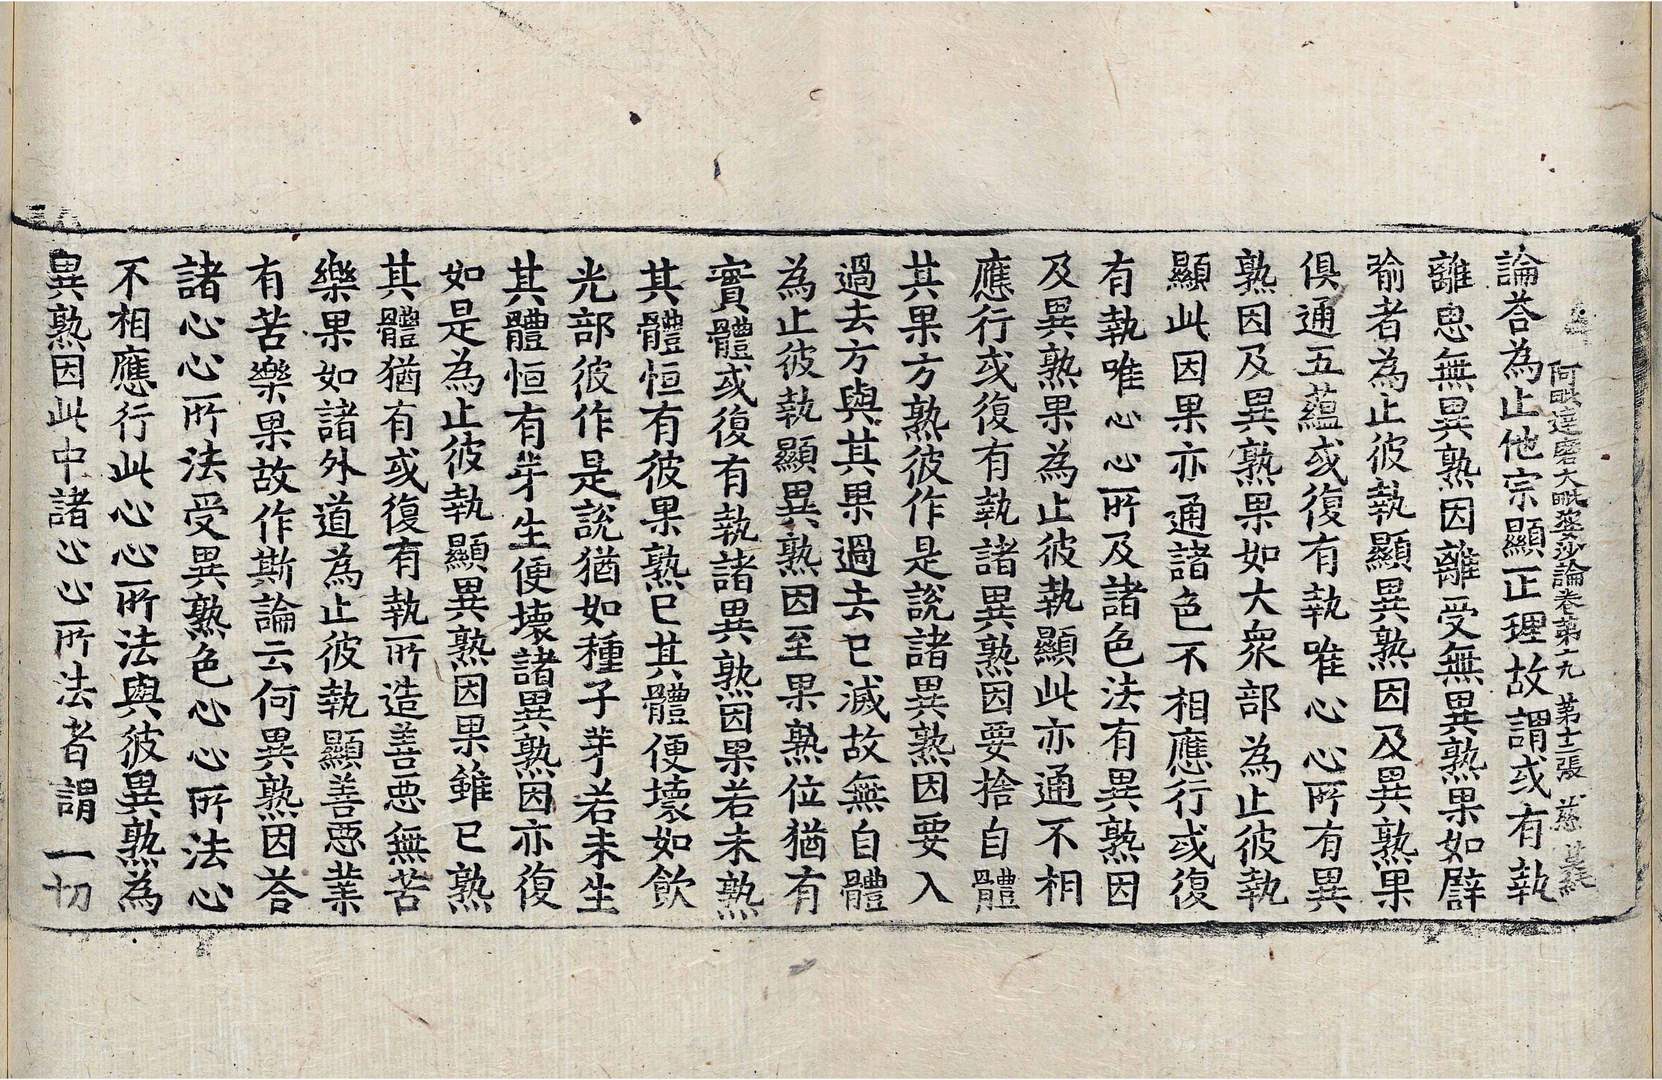 阿毗達磨大毗婆沙論卷第十九 第十二張 慈
論荅為止他宗顯正理故謂或有執
離思無異熟因離受無異熟果如譬
喻者為止彼執顯異熟因及異熟果
俱通五蘊或復有執唯心心所有異
熟因及異熟果如大衆部為止彼執
顯此因果亦通諸色不相應行或復
有執唯心心所及諸色法有異熟因
及異熟果為止彼執顯此亦通不相
應行或復有執諸異熟因要捨自體
其果方熟彼作是說諸異熟因要入
過去方與其果過去已滅故無自體
為止彼執顯異熟因至果熟位猶有
實體或復有執諸異熟因果若未熟
其體恒有彼果熟已其體便壞如飲
光部彼作是說猶如種子芽若未生
其體恒有芽生便壞諸異熟因亦復
如是為止彼執顯異熟因果雖已熟
其體猶有或復有執所造善惡無苦
樂果如諸外道為止彼執顯善惡業
有苦樂果故作斯論云何異熟因荅
諸心心所法受異熟色心心所法心
不相應行此心心所法與彼異熟為
異熟因此中諸心心所法者謂一切